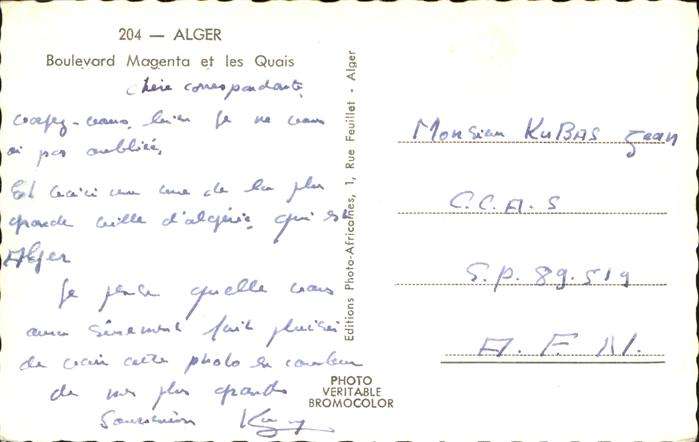 204 — ALGER
Boulevard Magenta et les Quais
Chère correspondante
croyez-vous, bien je ne vous
ai pas oubliée,
Et voici une vue de la plus
grande ville d'algérie, qui est
Alger
Je pense quelle vous
aura sûrement fait plaisir
de voir cette photo en couleur
de nos plus grands
Souvenirs
Editions Photo-Africaines, 1, Rue Feuillet - Alger
PHOTO
VERITABLE
BROMOCOLOR
Monsieur KUBAS Jean
C.C.A.S
S.P. 89.519
A. F. N.